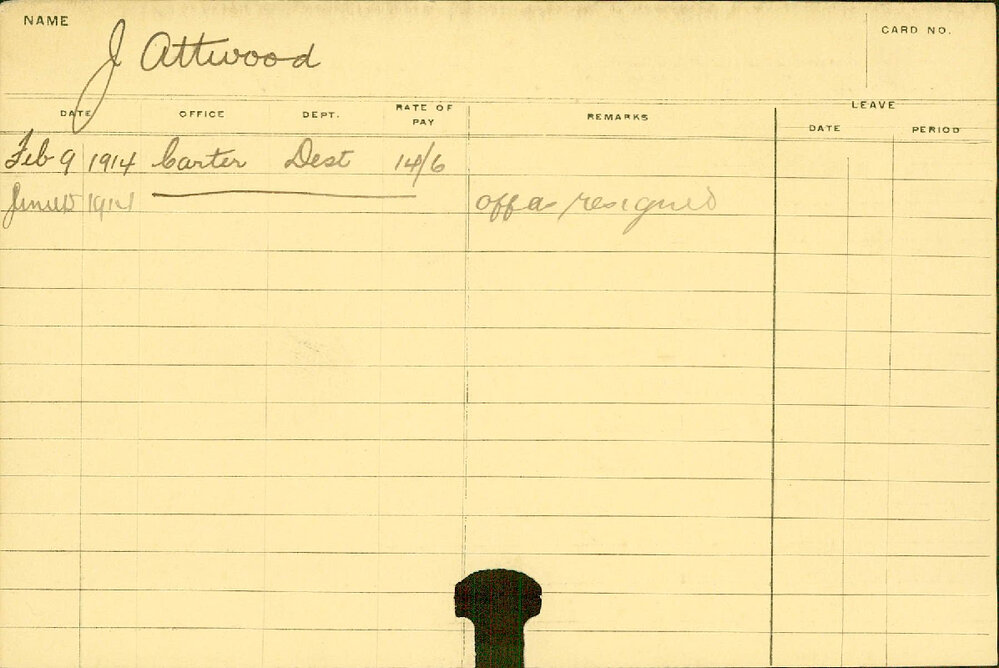 NAME
J Attwood
CARD NO.
DATE OFFICE DEPT. RATE OF PAY REMARKS LEAVE
DATE PERIOD
Feb 9 1914 Carter Dest 14/6
1914 off as resigned